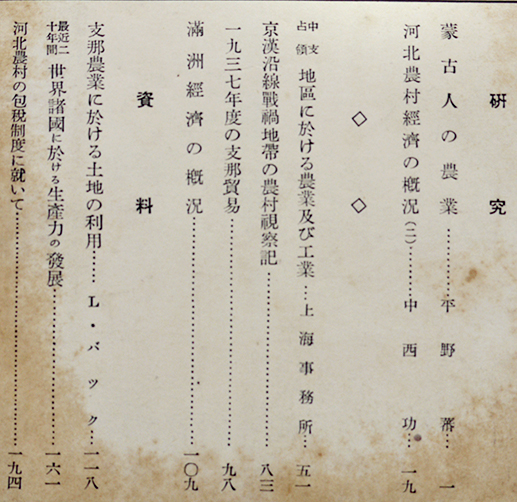 研究
蒙古人の農業………平野蕃…一
河北農村經濟の槪況(二)………中西功…一九
◇ ◇
中支占領地區に於ける農業及び工業…上海事務所…五一
京漢沿線戰禍地帶の農村視察記………八三
一九三七年度の支那貿易………九八
滿洲經濟の槪況………一〇九
資料
支那農業に於ける土地の利用……L・バック…一一八
最近二十年間世界諸國に於ける生產力の發展………一六一
河北農村の包稅制度に就いて………一九四